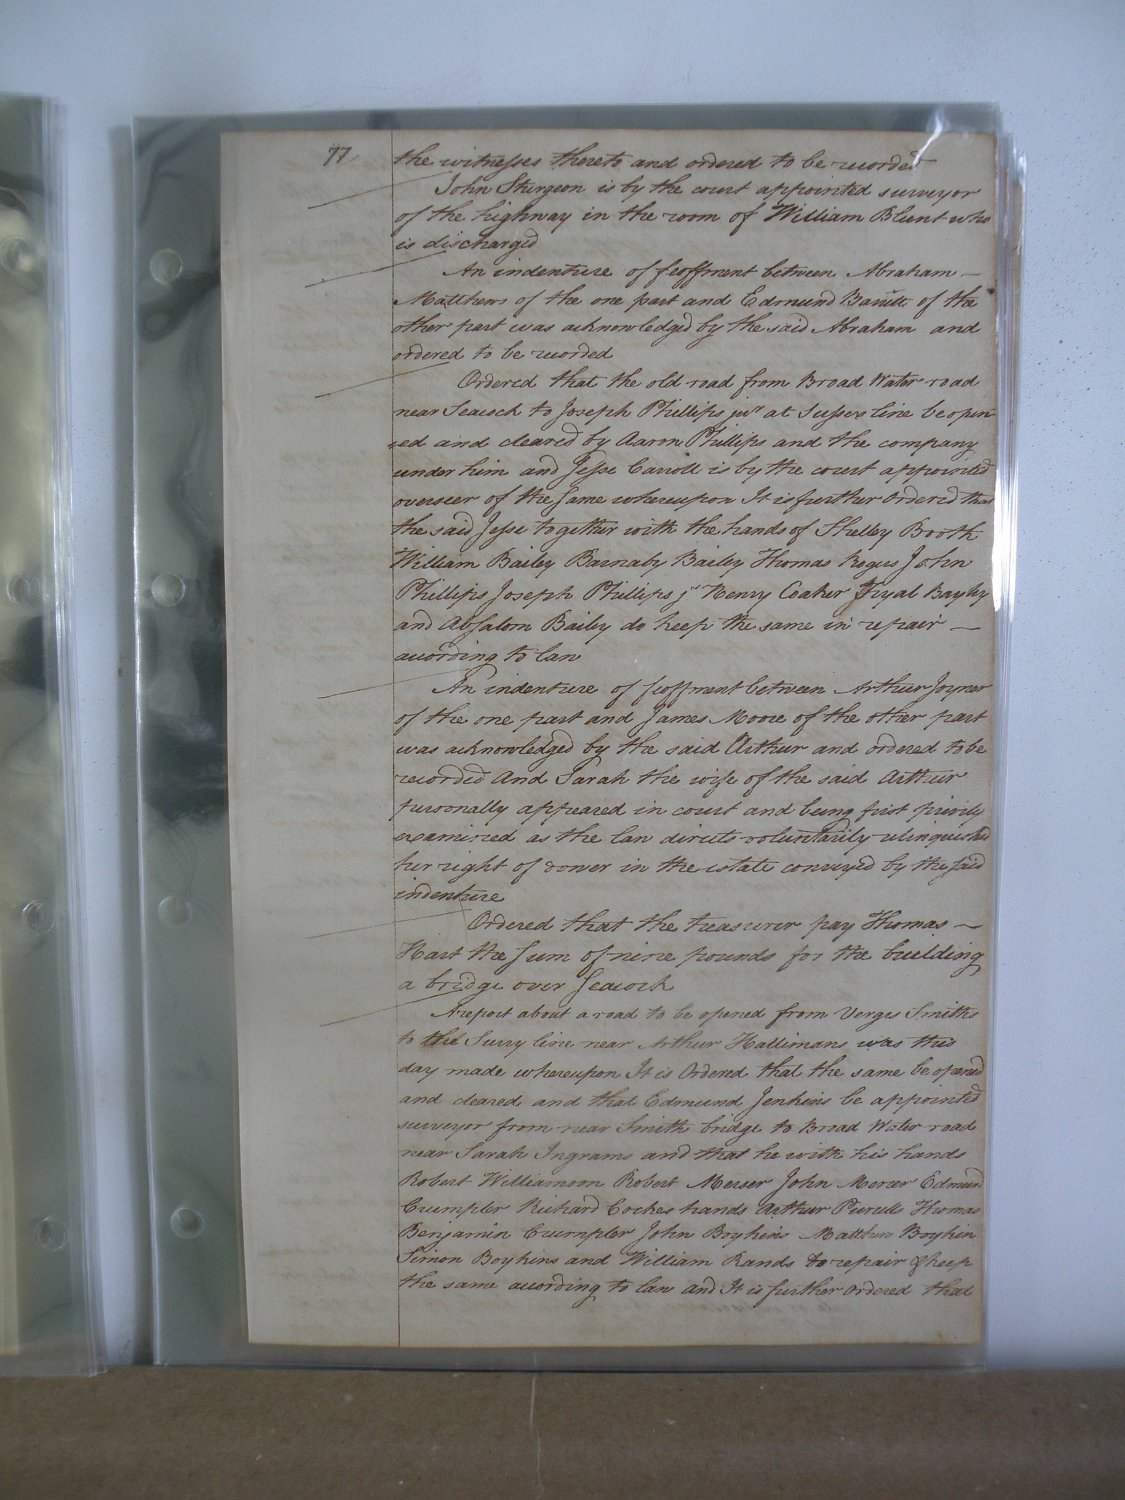 77
the witnesses thereto and ordered to be recorded
John Sturgeon is by the court appointed surveyor
of the highway in the room of William Blunt who
is discharged
An indenture of feoffment between Abraham
Matthews of the one part and Edmund of the
other part was acknowledged by the said Abraham and
ordered to be recorded
Ordered that the old road from Broad Water road
near Seacock to Joseph Phillips junr at Sussex line be open
ed and cleared by Aaron Phillips and the company
under him and Jesse Carroll is by the court appointed
overseer of the same whereupon It is further Ordered that
the said Jesse together with the hands of Shelley Booth
William Bailey Barnaby Bailey Thomas Rogers John
Phillips Joseph Phillips jr Henry Coaker Bayley
and Absalom Bailey do keep the same in repair
according to law
An indenture of feoffment between Arthur Joyner
of the one part and James Moore of the other part
was acknowledged by the said Arthur and ordered to be
recorded And Sarah the wife of the said Arthur
personally appeared in court and being first privily
examined as the law directs voluntarily relinquished
her right of dower in the estate conveyed by the said
indenture
Ordered that the treasurer pay Thomas
Hart the sum of nine pounds for the building
a bridge over Seacock
A report about a road to be opened from Verges Smiths
to the Surry line near Arthur Hallimans was this
day made whereupon It is Ordered that the same be opened
and cleared and that Edmund Jenkins be appointed
surveyor from near Smith bridge to Broad Water road
near Sarah Ingrams and that he with his hands
Robert Williamson Robert Merser John Mercer Edmund
Crumpler Richard Cockes hands Arthur Thomas
Benjamin Crumpler John Boykins Matthew Boykin
Simon Boykins and William Rands do repair & keep
the same according to law and It is further Ordered that